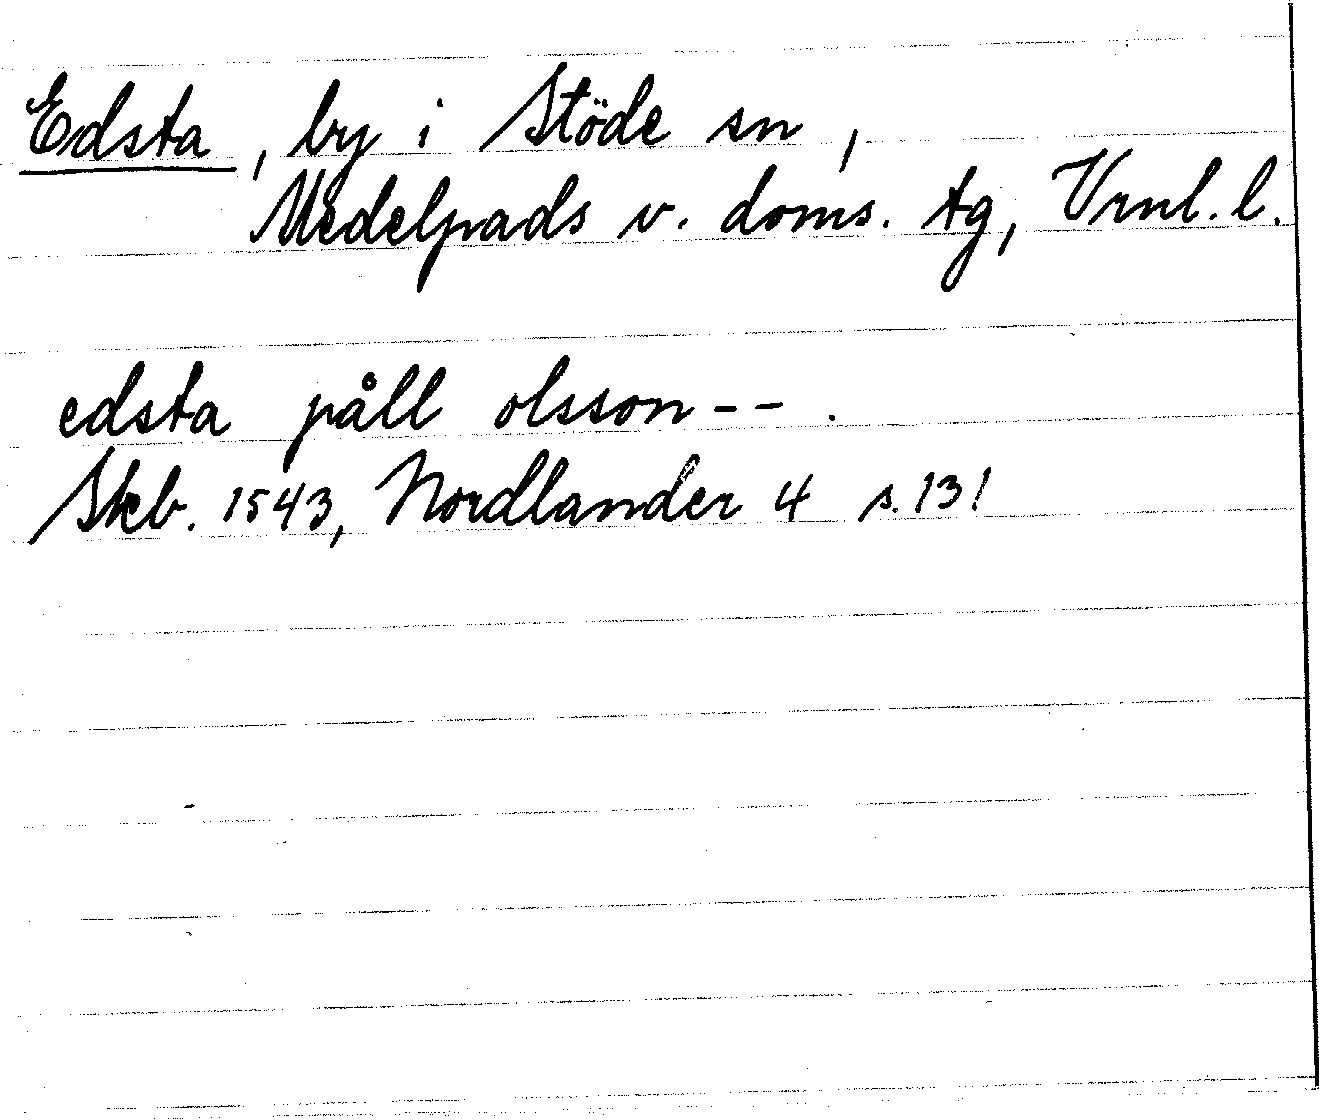 Edsta, by i Stöde sn,
Medelpads v. doms. tg, Vrnl. l.
edsta påll olsson - - .
Skb. 1543, Nordlander 4 s. 131